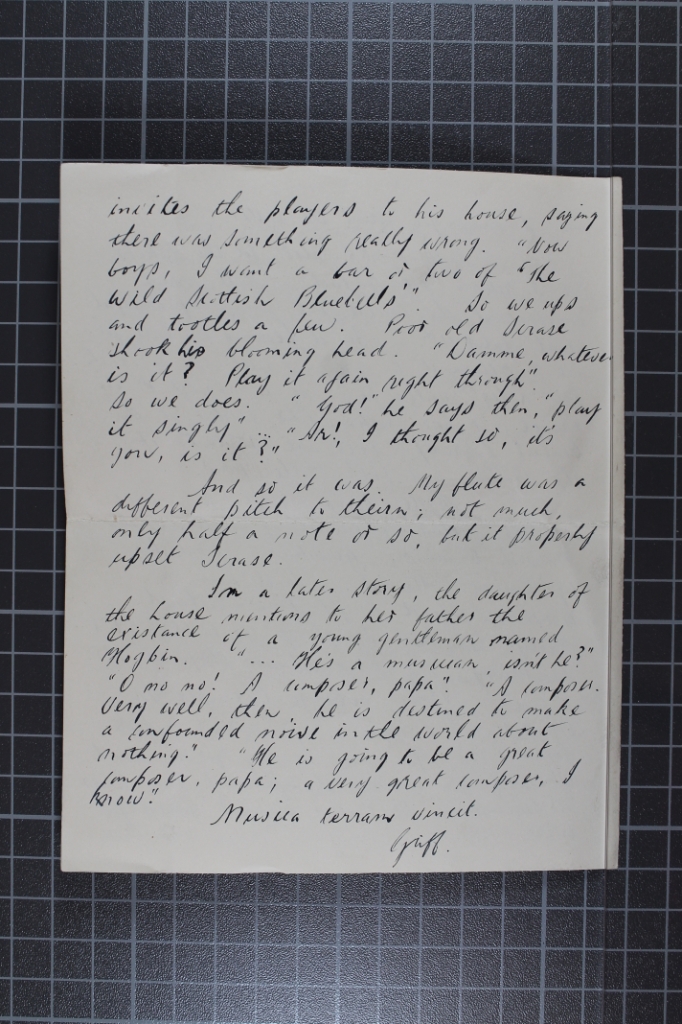 invites the players to his house, saying
there was something really wrong. "Now
boys, I want a bar or two of 'The
Wild Scottish Bluebells'". So we ups
and tootles a few. Poor old Scrase
shook his blooming head. "Damme, whatever
is it? Play it again right through".
So we does. "God!" he says then, "play
it singly" ... "Ar!, I thought so, it's
you, is it?"
And so it was. My flute was a
different pitch to theirn; not much,
only half a note or so, but it properly
upset Scrase.
In a later story, the daughter of
the house mentions to her father the
existance of a young gentleman named
Hogbin. "... He's a musician, isn't he?"
"O no no! A composer, papa". "A composer.
Very well, then, he is destined to make
a confounded noise in the world about
nothing." "He is going to be a great
composer, papa; a very great composer, I
know".
Musica terram vincit.
Griff.